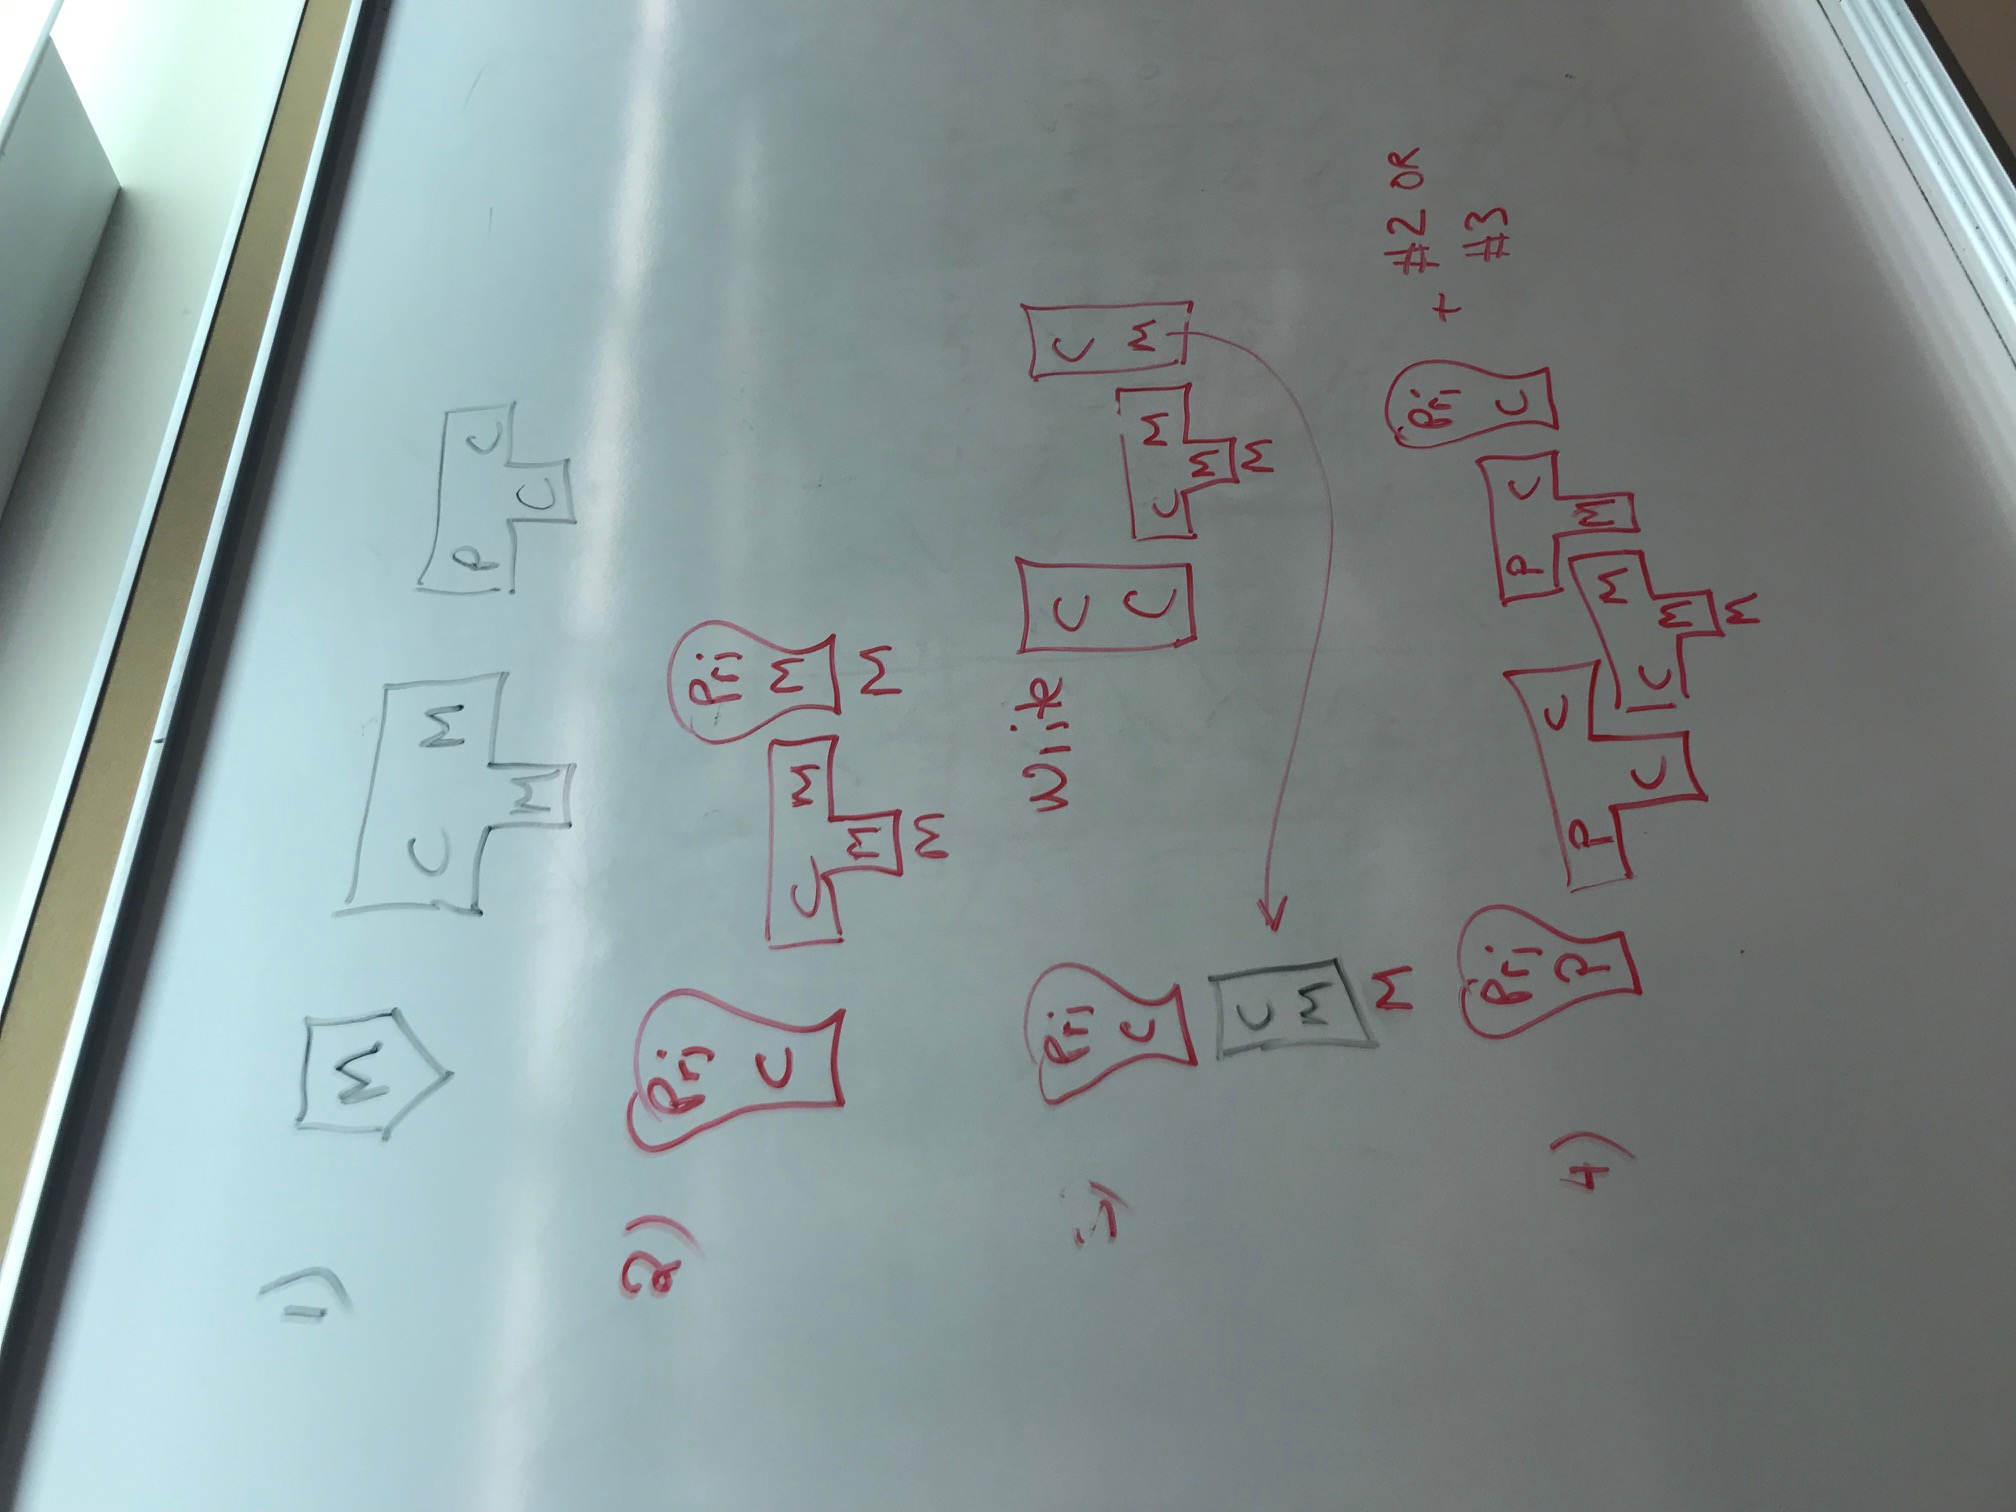 1)
M
C M
M
P C
C
2)
Prj
C
C M
M
M
Prj
M
M
3)
Prj
C
C
M
M
Write
C
C
C M
M
M
C
M
4)
Prj
P
P C
C
C M
M
M
P C
M
Prj
C
+ #2 OR
#3